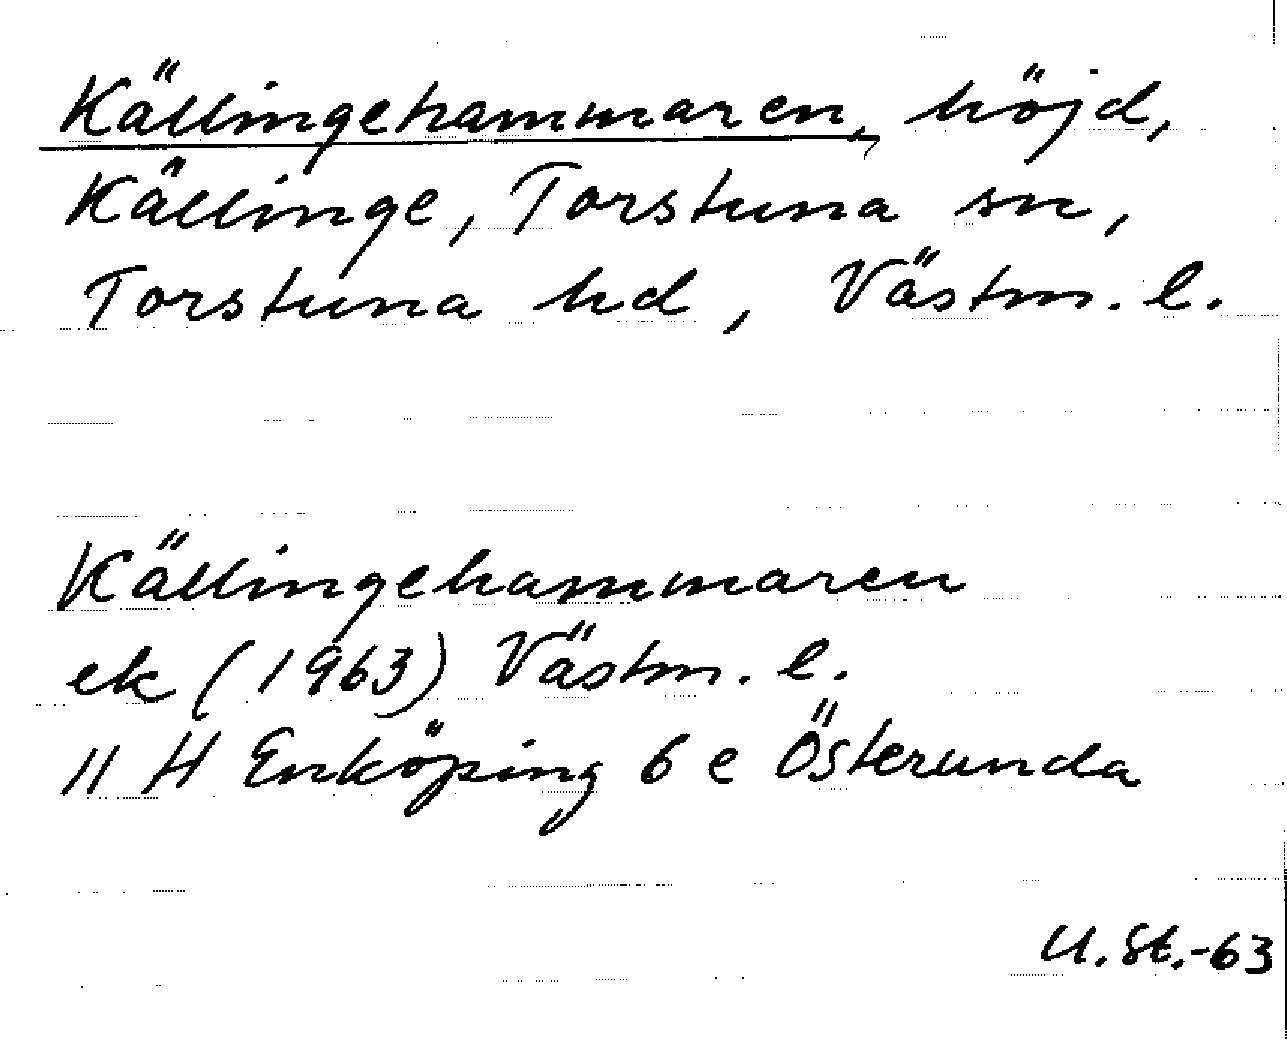 Källingehammaren, höjd,
Källinge, Torstuna sn,
Torstuna hd, Västm. l.
Källingehammaren
ek (1963) Västm. l.
11 H Enköping 6 e Österunda
U. St.-63